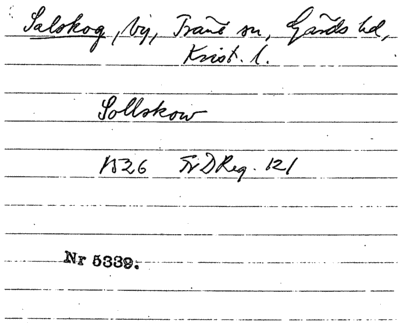 Salskog, by, Tranå sn, Gärds hd,
Krist. l.
Sollskow
1526 Fr D Reg. 121
Nr 5339.